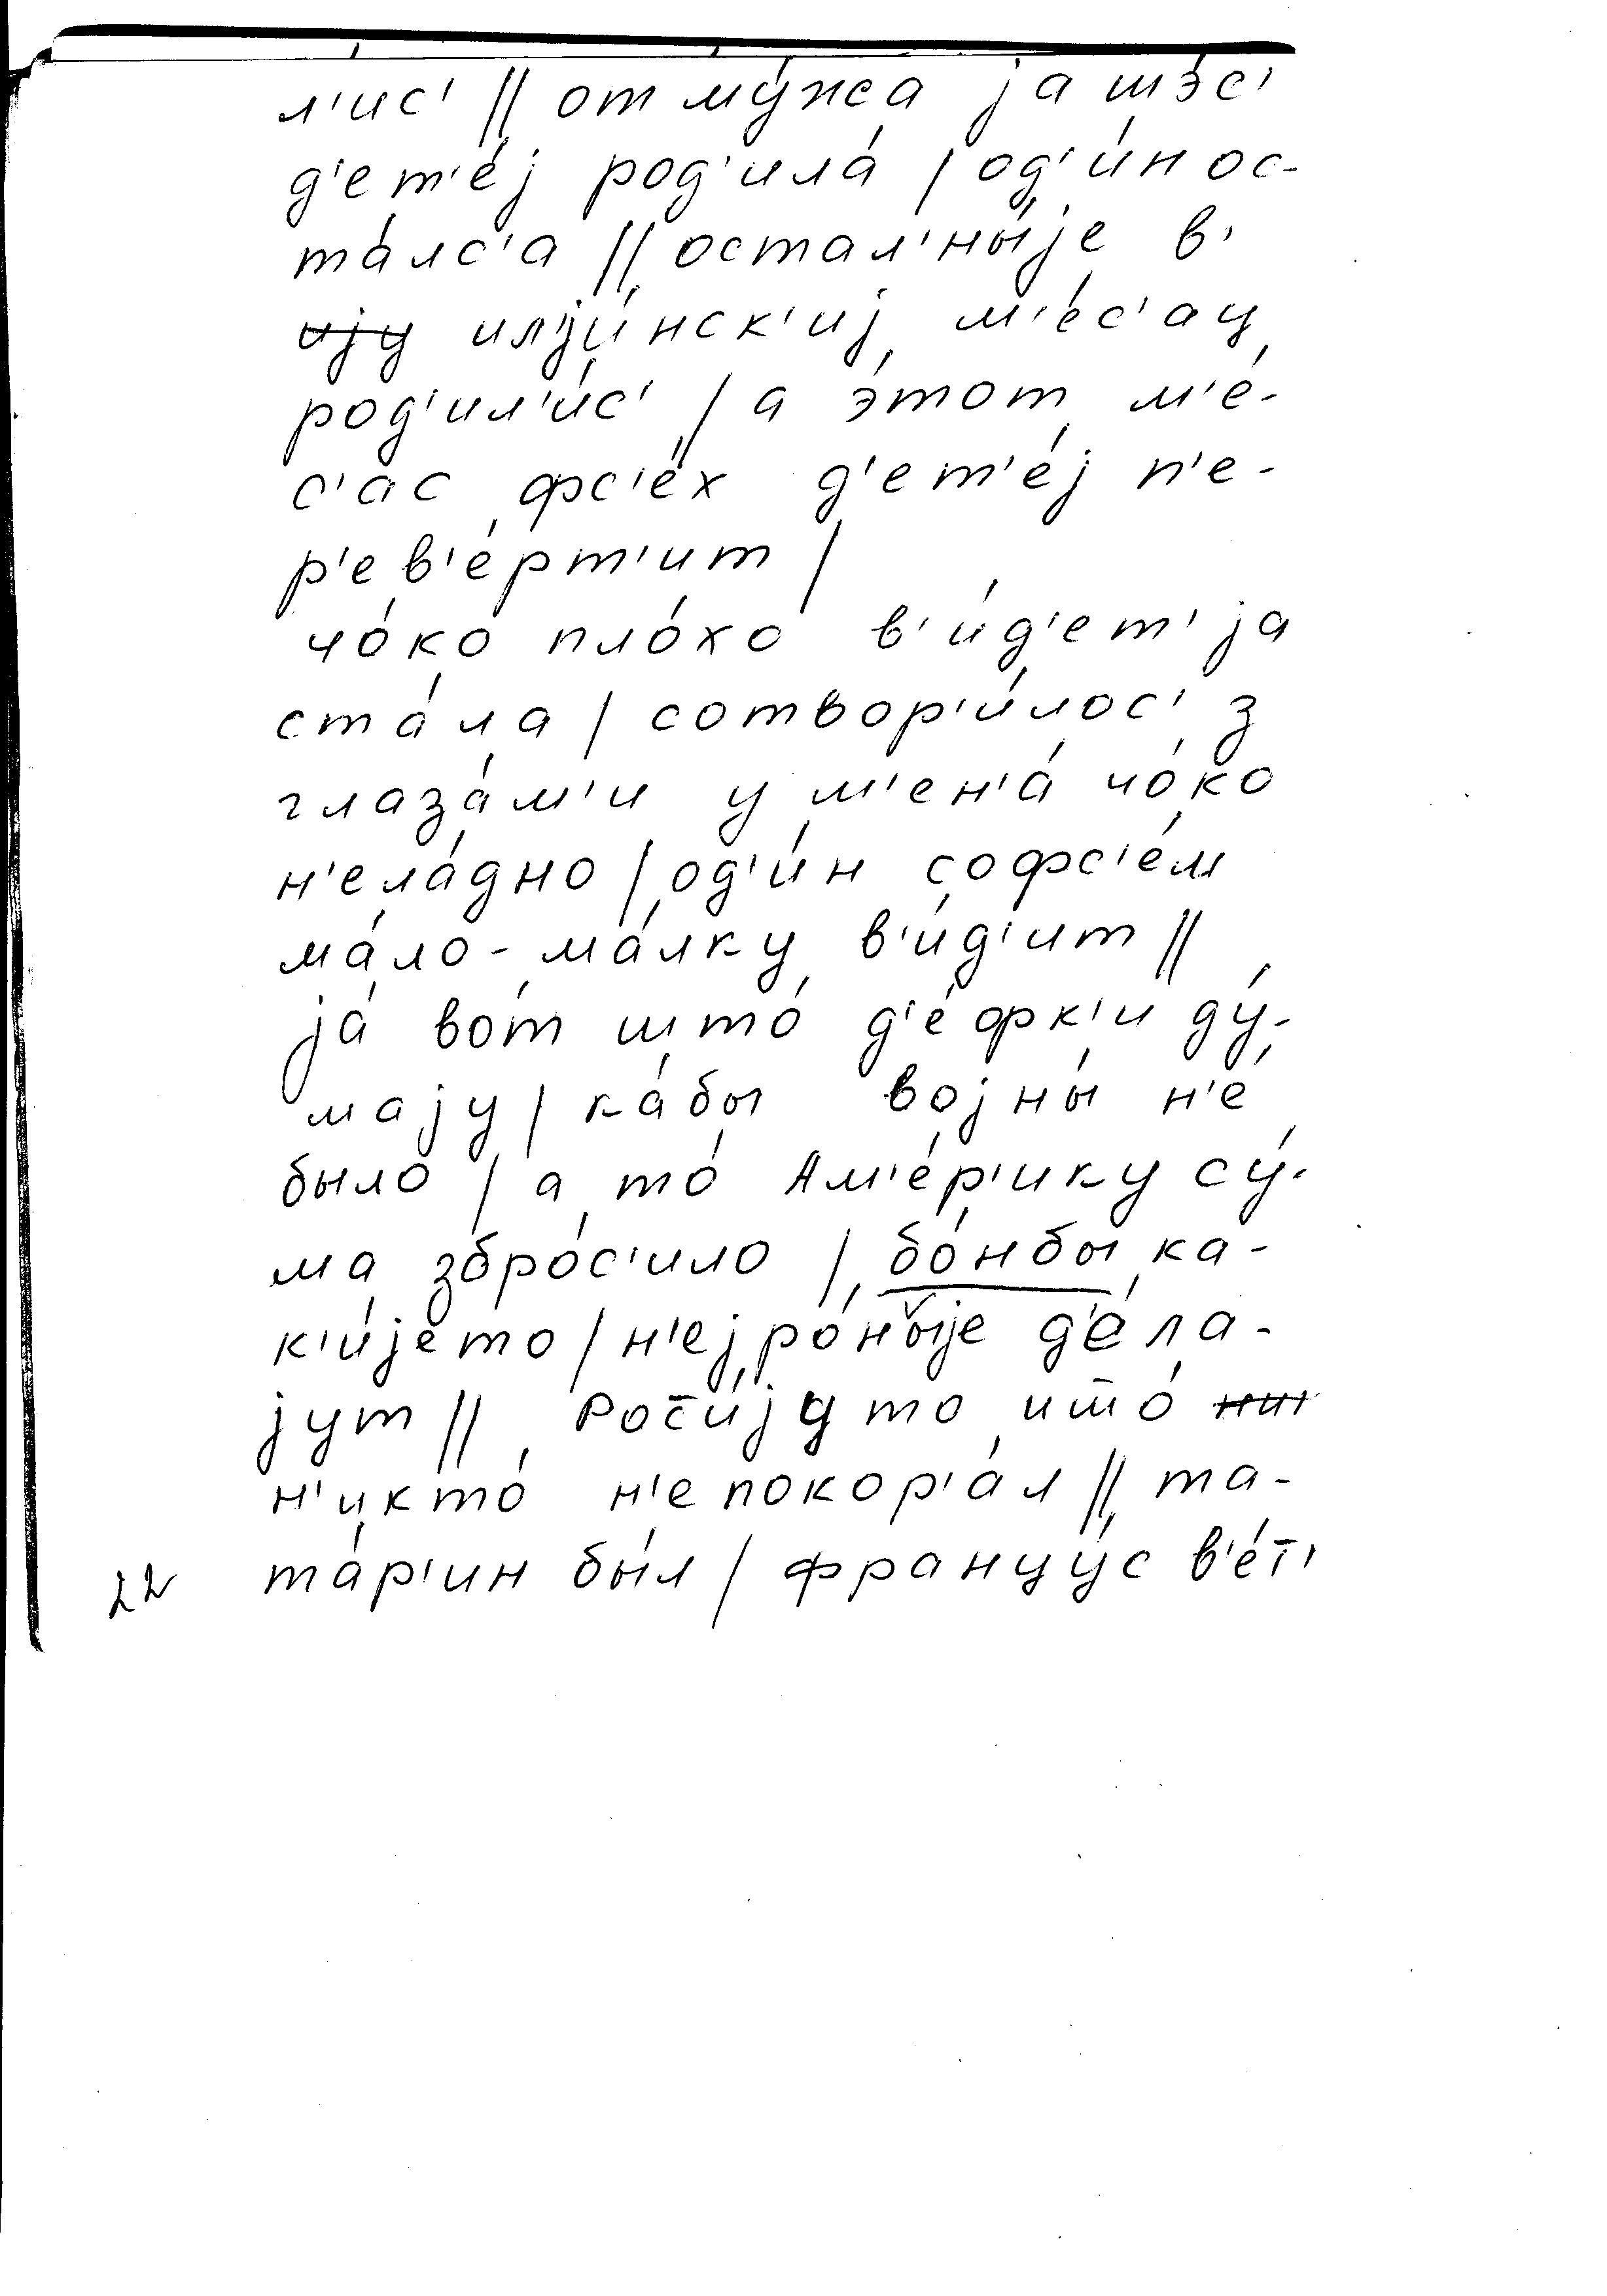 л'ис' || от му́жа ја шэ́с'
д'ет'е́ј род'ила́ / од'и́н ос-
та́лс'а || остал'ны́је в'
ују ил'ји́нск'иј м'е́с'ац
род'ил'и́с' / а э́тот м'е́-
с'ас фс'е́х д'ет'е́ј п'е-
р'ев'е́рт'ит /
чо́ко пло́хо в'и́д'ет' ја
ста́ла / сотвор'и́лос' з
глаза́м'и у м'ен'а́ чо́ко
н'ела́дно / од'и́н софс'е́м
ма́ло-ма́лку в'и́д'ит ||
ја́ во́т што́ д'е́фк'и ду́-
мају / ка́бы војны́ н'е́
было / а то́ Ам'е́р'ику су́-
ма збро́с'ило / бо́нбы ка-
к'и́јето / н'ејро́ныје д'е́ла-
јут || Рос̄и́ју то што́ нин
н'икто́ н'е покор'а́л || та-
та́р'ин бы́л / францу́с в'е́т'
22